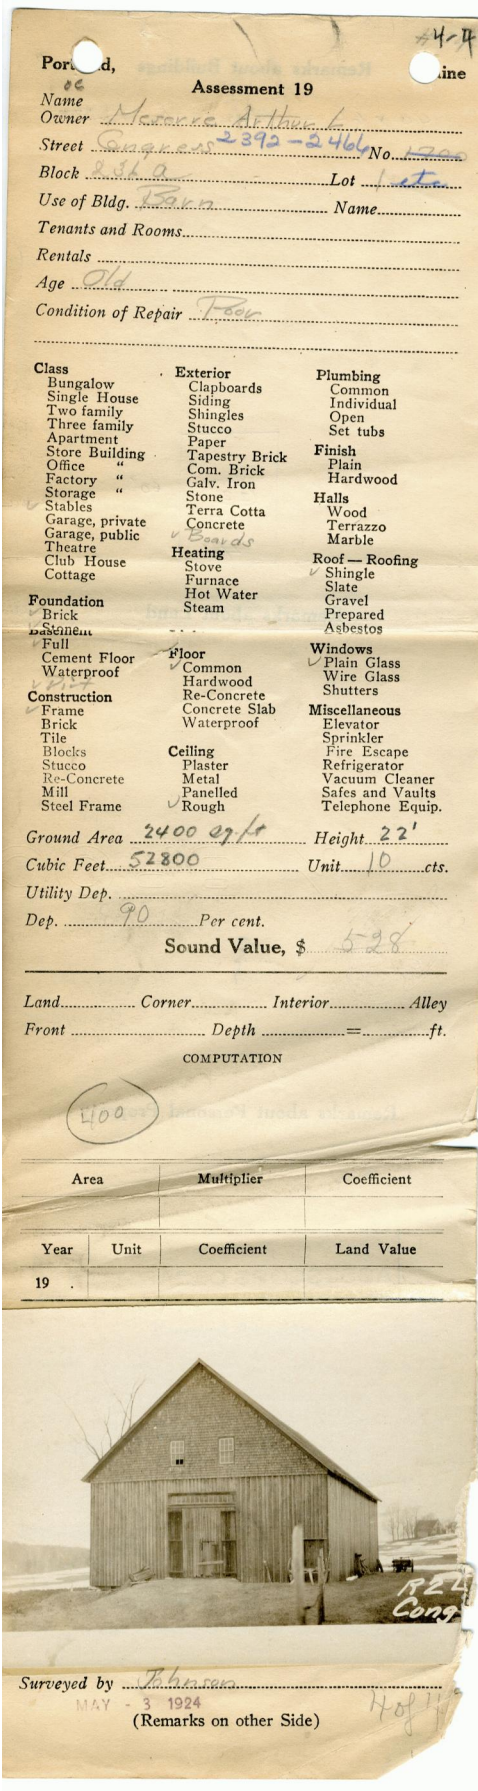 4-4
Portland, Maine
Assessment 19
Name
of
Owner Meserve Arthur L
Street Congress 2392-2466 No. 1700
Block 236 A Lot 1 etc
Use of Bldg. Barn Name
Tenants and Rooms
Rentals
Age Old
Condition of Repair Poor
Class
Bungalow
Single House
Two family
Three family
Apartment
Store Building
Office "
Factory "
Storage "
✓ Stables
Garage, private
Garage, public
Theatre
Club House
Cottage
Foundation
✓ Brick
✓ Stone
Basement
✓ Full
Cement Floor
Waterproof
✓ Dirt
Construction
✓ Frame
Brick
Tile
Blocks
Stucco
Re-Concrete
Mill
Steel Frame
Exterior
Clapboards
Siding
Shingles
Stucco
Paper
Tapestry Brick
Com. Brick
Galv. Iron
Stone
Terra Cotta
Concrete
✓ Boards
Heating
Stove
Furnace
Hot Water
Steam
Floor
✓ Common
Hardwood
Re-Concrete
Concrete Slab
Waterproof
Ceiling
Plaster
Metal
Panelled
✓ Rough
Plumbing
Common
Individual
Open
Set tubs
Finish
Plain
Hardwood
Halls
Wood
Terrazzo
Marble
Roof — Roofing
✓ Shingle
Slate
Gravel
Prepared
Asbestos
Windows
✓ Plain Glass
Wire Glass
Shutters
Miscellaneous
Elevator
Sprinkler
Fire Escape
Refrigerator
Vacuum Cleaner
Safes and Vaults
Telephone Equip.
Ground Area 2400 sq ft Height 22'
Cubic Feet 52800 Unit 10 cts.
Utility Dep.
Dep. 90 Per cent.
Sound Value, $ 528
Land Corner Interior Alley
Front Depth = ft.
COMPUTATION
400
Area Multiplier Coefficient
Year Unit Coefficient Land Value
19 .
Cong
Surveyed by Johnson
MAY - 3 1924
4 of
(Remarks on other Side)